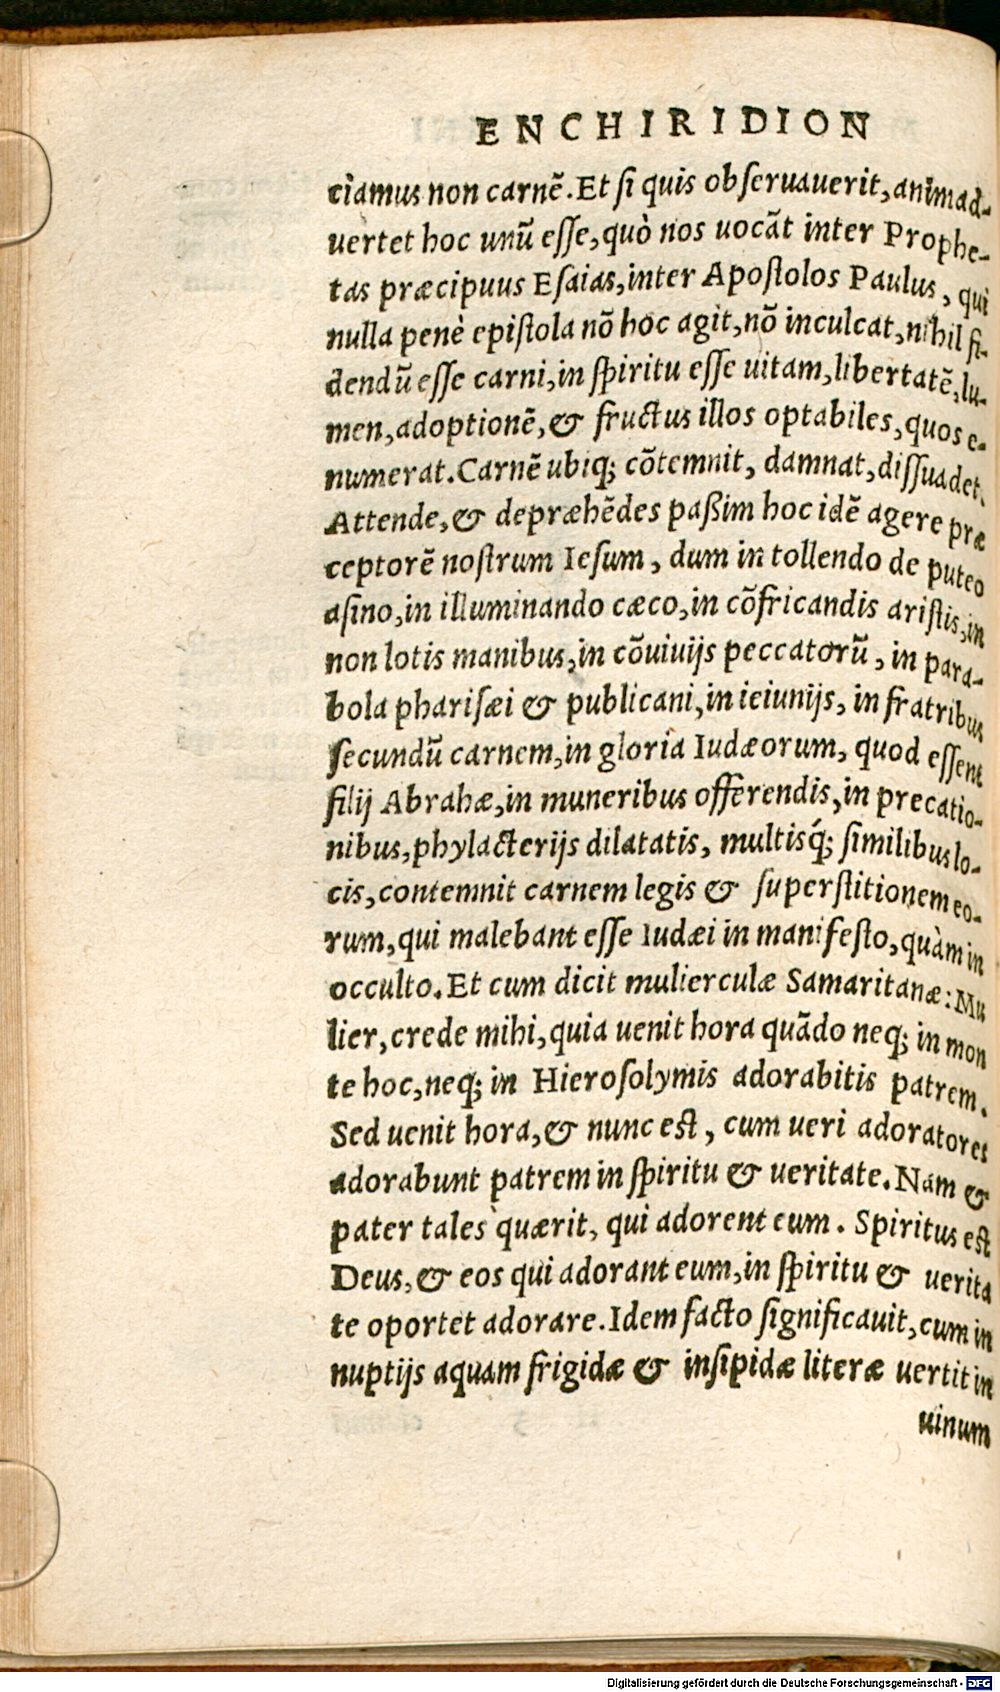 ENCHIRIDION
ciamus non carnē. Et si quis obseruauerit, animad-
uertet hoc unū esse, quò nos uocāt inter Prophe-
tas præcipuus Esaias, inter Apostolos Paulus, qui
nulla penè epistola nō hoc agit, nō inculcat, nihil fi-
dendū esse carni, in spiritu esse uitam, libertatē, lu-
men, adoptionē, & fructus illos optabiles, quos e-
numerat. Carnē ubiq; cōtemnit, damnat, dissuadet.
Attende, & depræhēdes paßim hoc idē agere præ
ceptorē nostrum Iesum, dum in tollendo de puteo
asino, in illuminando cæco, in cōfricandis aristis, in
non lotis manibus, in cōuiuijs peccatorū, in para-
bola pharisæi & publicani, in ieiunijs, in fratribus
secundū carnem, in gloria Iudæorum, quod essent
filij Abrahæ, in muneribus offerendis, in precatio-
nibus, phylacterijs dilatatis, multisq́; similibus lo-
cis, contemnit carnem legis & superstitionem eo-
rum, qui malebant esse Iudæi in manifesto, quàm in
occulto. Et cum dicit mulierculæ Samaritanæ: Mu
lier, crede mihi, quia uenit hora quādo neq; in mon
te hoc, neq; in Hierosolymis adorabitis patrem.
Sed uenit hora, & nunc est, cum ueri adoratores
adorabunt patrem in spiritu & ueritate. Nam &
pater tales quærit, qui adorent eum. Spiritus est
Deus, & eos qui adorant eum, in spiritu & uerita
te oportet adorare. Idem facto significauit, cum in
nuptijs aquam frigidæ & insipidæ literæ uertit in
uinum
Digitalisierung gefördert durch die Deutsche Forschungsgemeinschaft - DFG